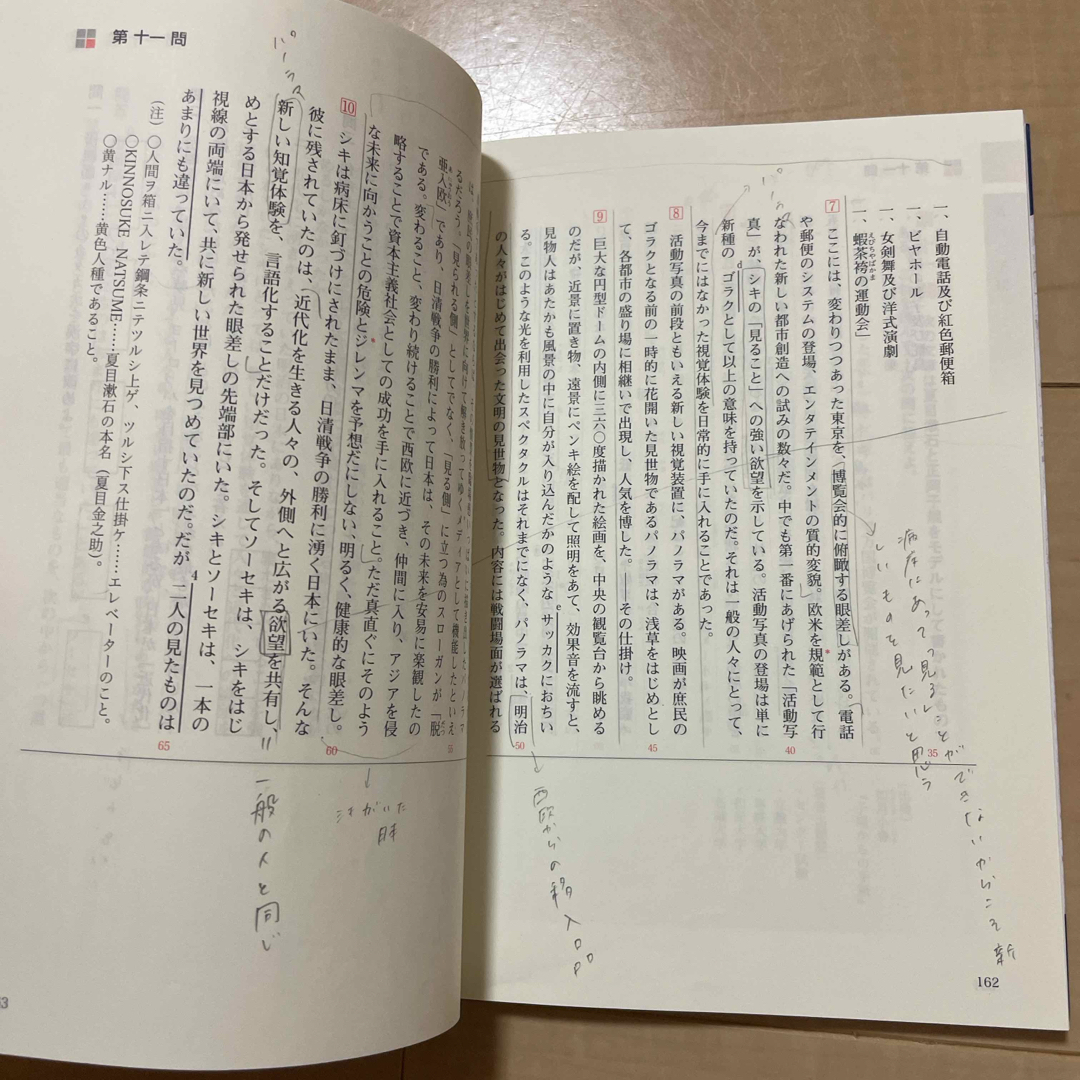 一、自動電話及び紅色郵便箱
一、ビヤホール
一、女剣舞及び洋式演劇
一、蝦茶袴の運動会」
えびちやばかま
7 ここには、変わりつつあった東京を、博覧会的に俯瞰する眼差しがある。電話
や郵便のシステムの登場、エンタテインメントの質的変貌。欧米を規範として行
なわれた新しい都市創造への試みの数々だ。中でも第一番にあげられた「活動写
真」が、シキの「見ること」への強い欲望を示している。活動写真の登場は単に
新種のゴラクとして以上の意味を持っていたのだ。それは一般の人々にとって、
d
今までにはなかった視覚体験を日常的に手に入れることであった。
8 活動写真の前段ともいえる新しい視覚装置に、パノラマがある。映画が庶民の
ゴラクとなる前の一時的に花開いた見世物であるパノラマは、浅草をはじめとし
て、各都市の盛り場に相継いで出現し、人気を博した。――その仕掛け。
9 巨大な円型ドームの内側に三六〇度描かれた絵画を、中央の観覧台から眺める
のだが、近景に置き物、遠景にペンキ絵を配して照明をあて、効果音を流すと、
見物人はあたかも風景の中に自分が入り込んだかのようなサッカクにおちい
e
る。このような光を利用したスペクタクルはそれまでになく、パノラマは、「明治
の人々がはじめて出会った文明の見世物となった。内容には戦闘場面が選ばれる
35
40
45
50
病床にあって見ることができないからこそ新
しいものを見たいと思う
西欧からの移入品
162
第十一問
るだろう。「見られる側」としてでなく、「見る側」に立つ為のスローガンが「脱
亜入欧」であり、日清戦争の勝利によって日本は、その未来を安易に楽観したの
である。変わること、変わり続けることで西欧に近づき、仲間に入り、アジアを侵
略することで資本主義社会としての成功を手に入れること。ただ真直ぐにそのよう
な未来に向かうことの危険とジレンマを予想だにしない、明るく、健康的な眼差し。
10 シキは病床に釘づけにされたまま、日清戦争の勝利に湧く日本にいた。そんな
彼に残されていたのは、近代化を生きる人々の、外側へと広がる欲望を共有し、
新しい知覚体験を、言語化することだけだった。そしてソーセキは、シキをはじ
めとする日本から発せられた眼差しの先端部にいた。シキとソーセキは、一本の
視線の両端にいて、共に新しい世界を見つめていたのだ。だが二人の見たものは
4
あまりにも違っていた。
55
60
65
(注) ○人間ヲ箱ニ入レテ鋼条ニテツルシ上ゲ、ツルシ下ス仕掛ケ……エレベーターのこと。
○KINNOSUKE NATSUME……夏目漱石の本名(夏目金之助)。
○黄ナル……黄色人種であること。
一般の人と同じ